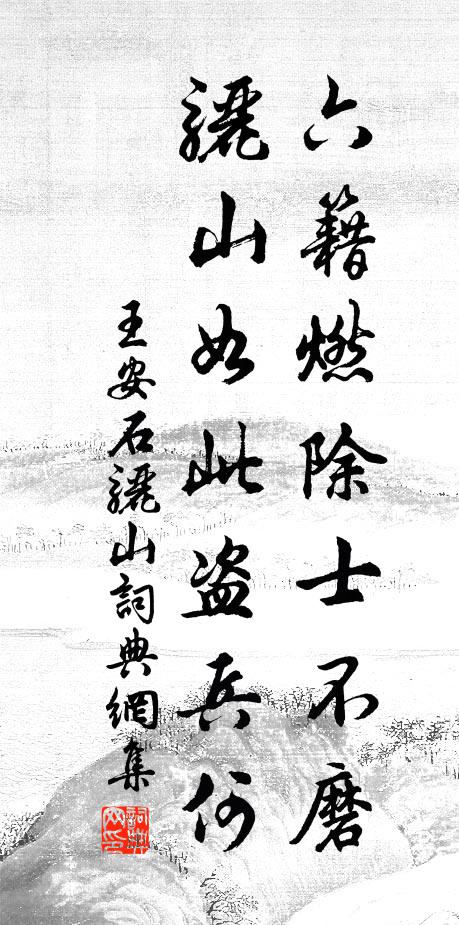 六籍燃除士不磨
驪山如此盜兵何
王安石驪山詞典網集